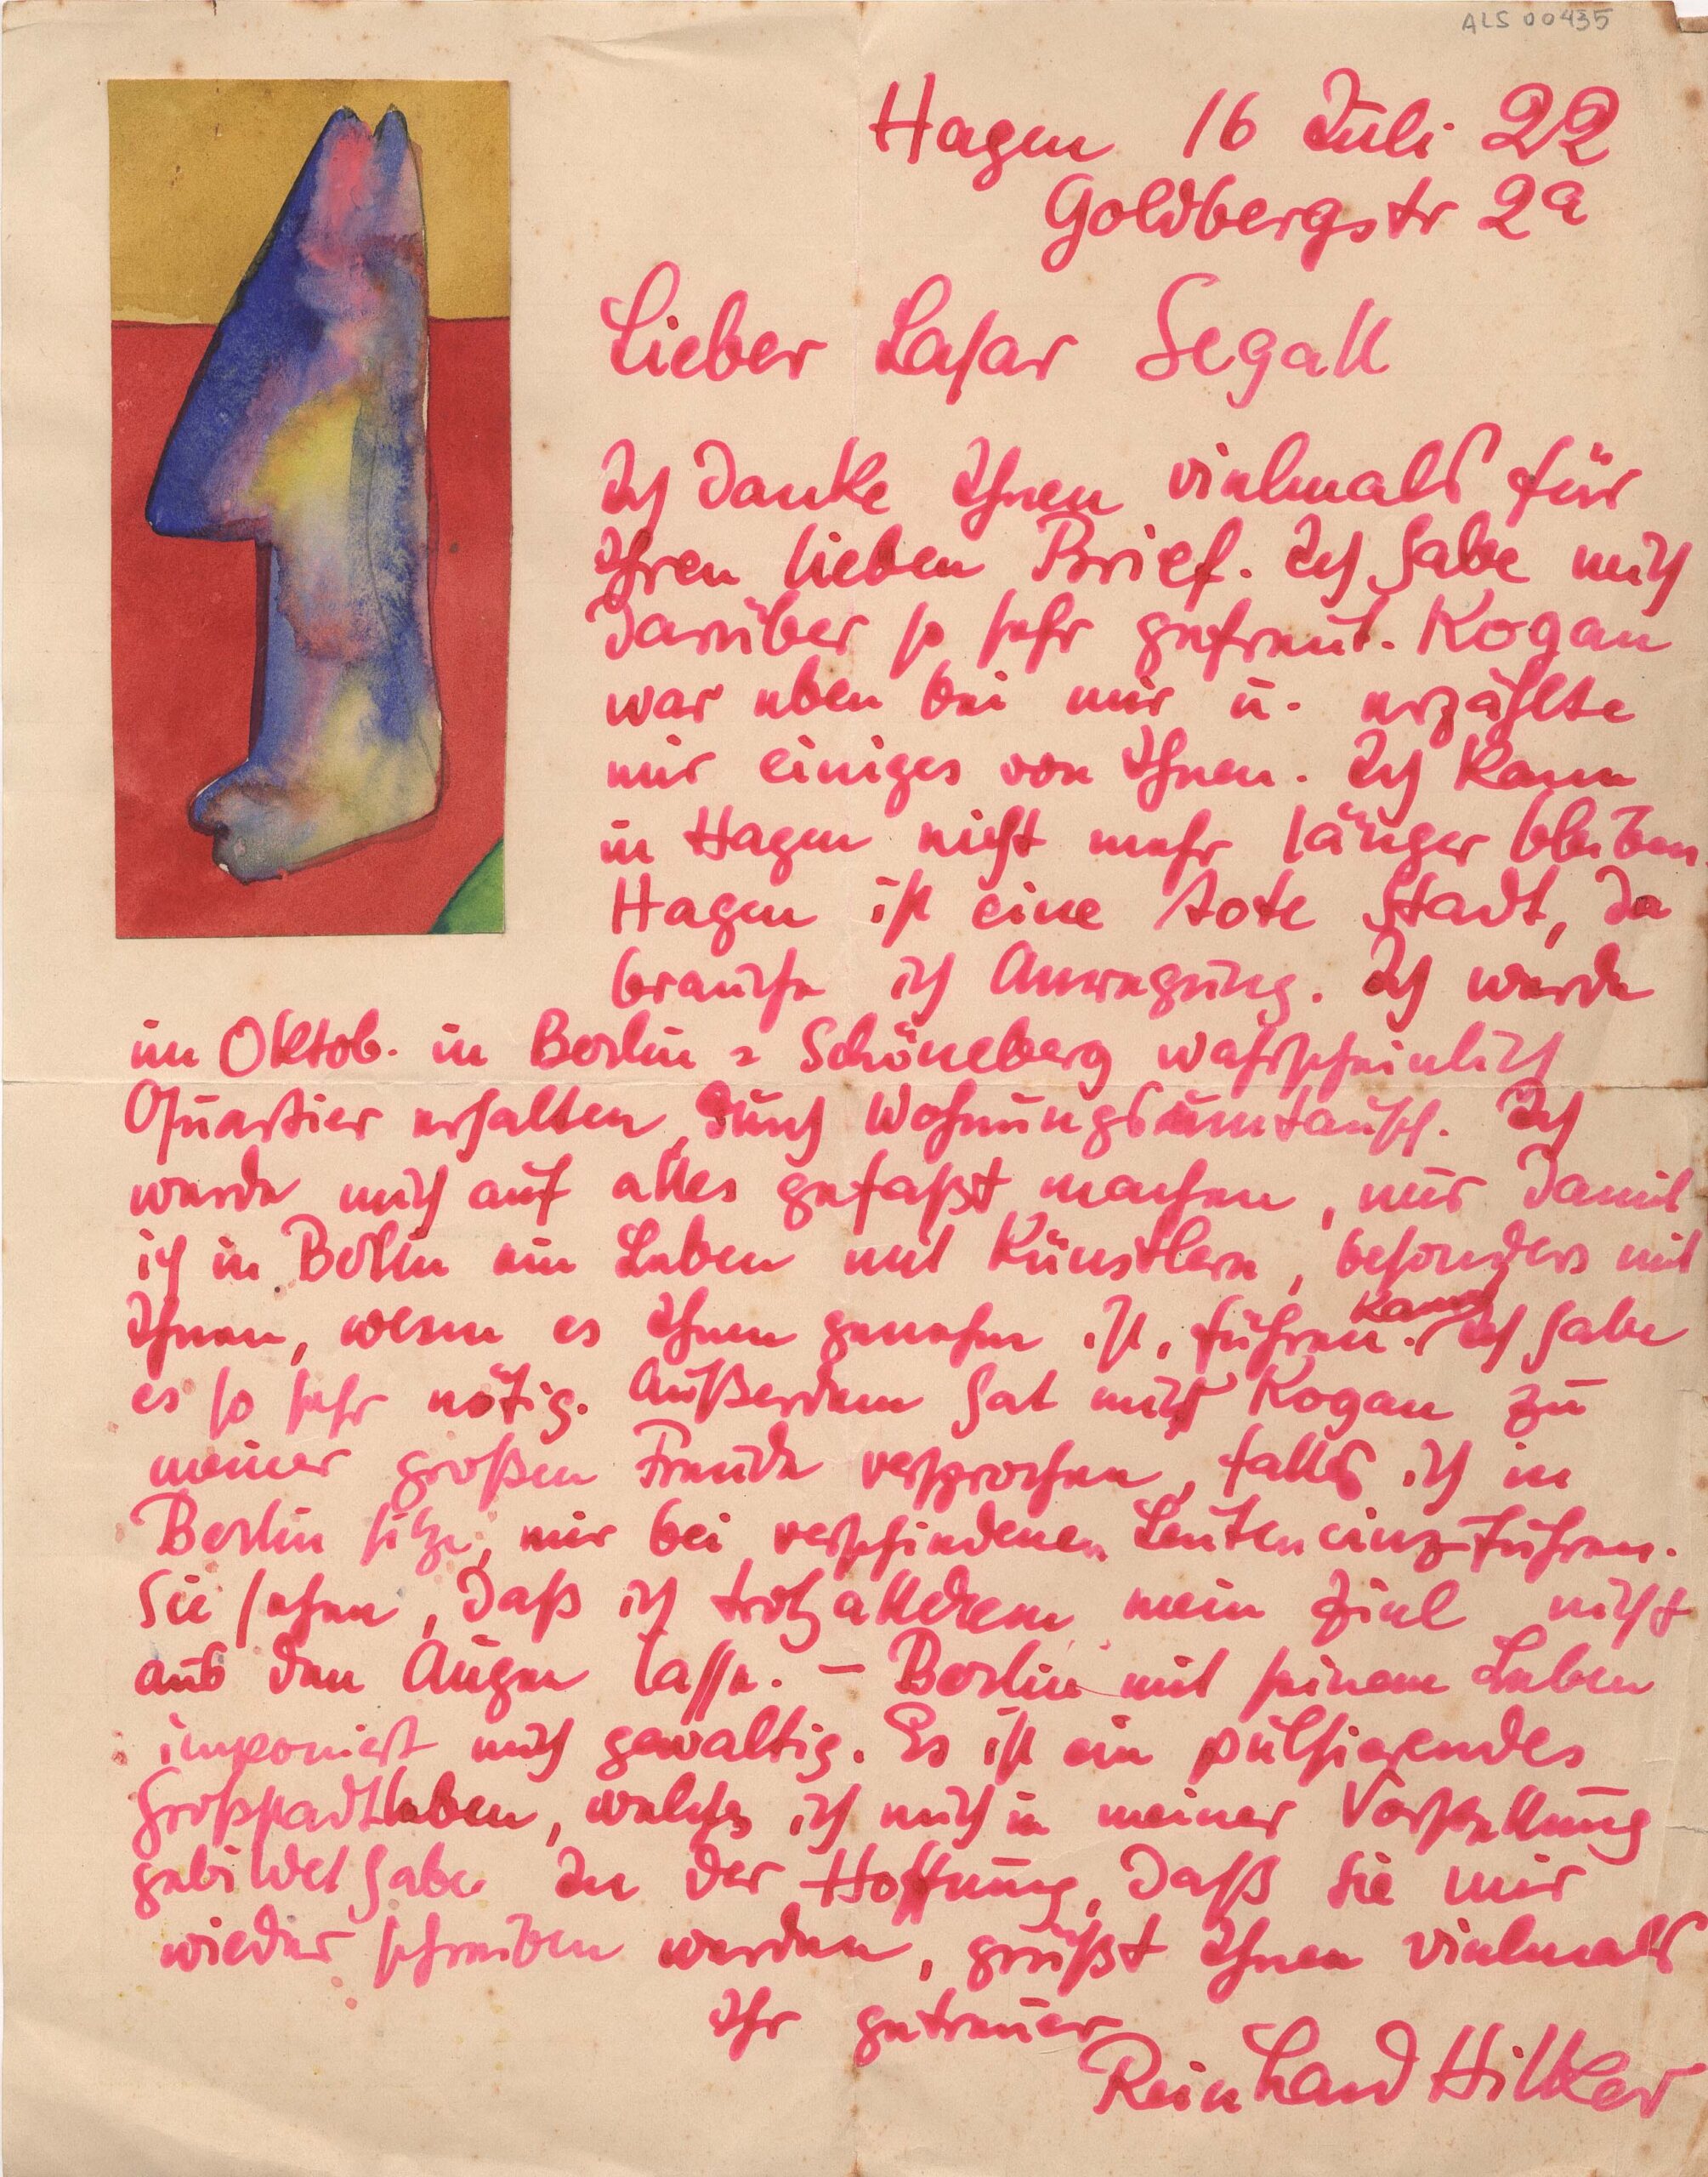 ALS 00435
Hagen 16 Juli 22
Goldbergstr 2a
Lieber Lasar Segall
Ich danke Ihnen vielmals für
Ihren lieben Brief. Ich habe mich
darüber so sehr gefreut. Kogan
war eben bei mir u. erzählte
mir einiges von Ihnen. Ich kann
in Hagen nicht mehr länger bleiben.
Hagen ist eine tote Stadt, da
brauche ich Anregung. Ich werde
im Oktob. in Berlin = Schöneberg wahrscheinlich
Quartier erhalten, durch Wohnungsumtausch. Ich
werde mich auf alles gefaßt machen, nur damit
ich in Berlin ein Leben mit Künstlern, besonders mit
Ihnen, wenn es Ihnen genehm ist, führen kann. Ich habe
es so sehr nötig. Außerdem hat mich Kogan zu
meiner großen Freude versprochen, falls ich in
Berlin sitze, mir bei verschiedenen Leuten einzuführen.
Sie sehen, daß ich trotzalldem mein Ziel nicht
aus den Augen lasse. – Berlin mit seinem Leben
imponiert mich gewaltig. Es ist ein pulsierendes
Großstadtleben, welches ich mich in meiner Vorstellung
gebildet habe. In der Hoffnung, daß Sie mir
wieder schreiben werden, grüßt Ihnen vielmals
Ihr getreuer
Reinhard Hilker